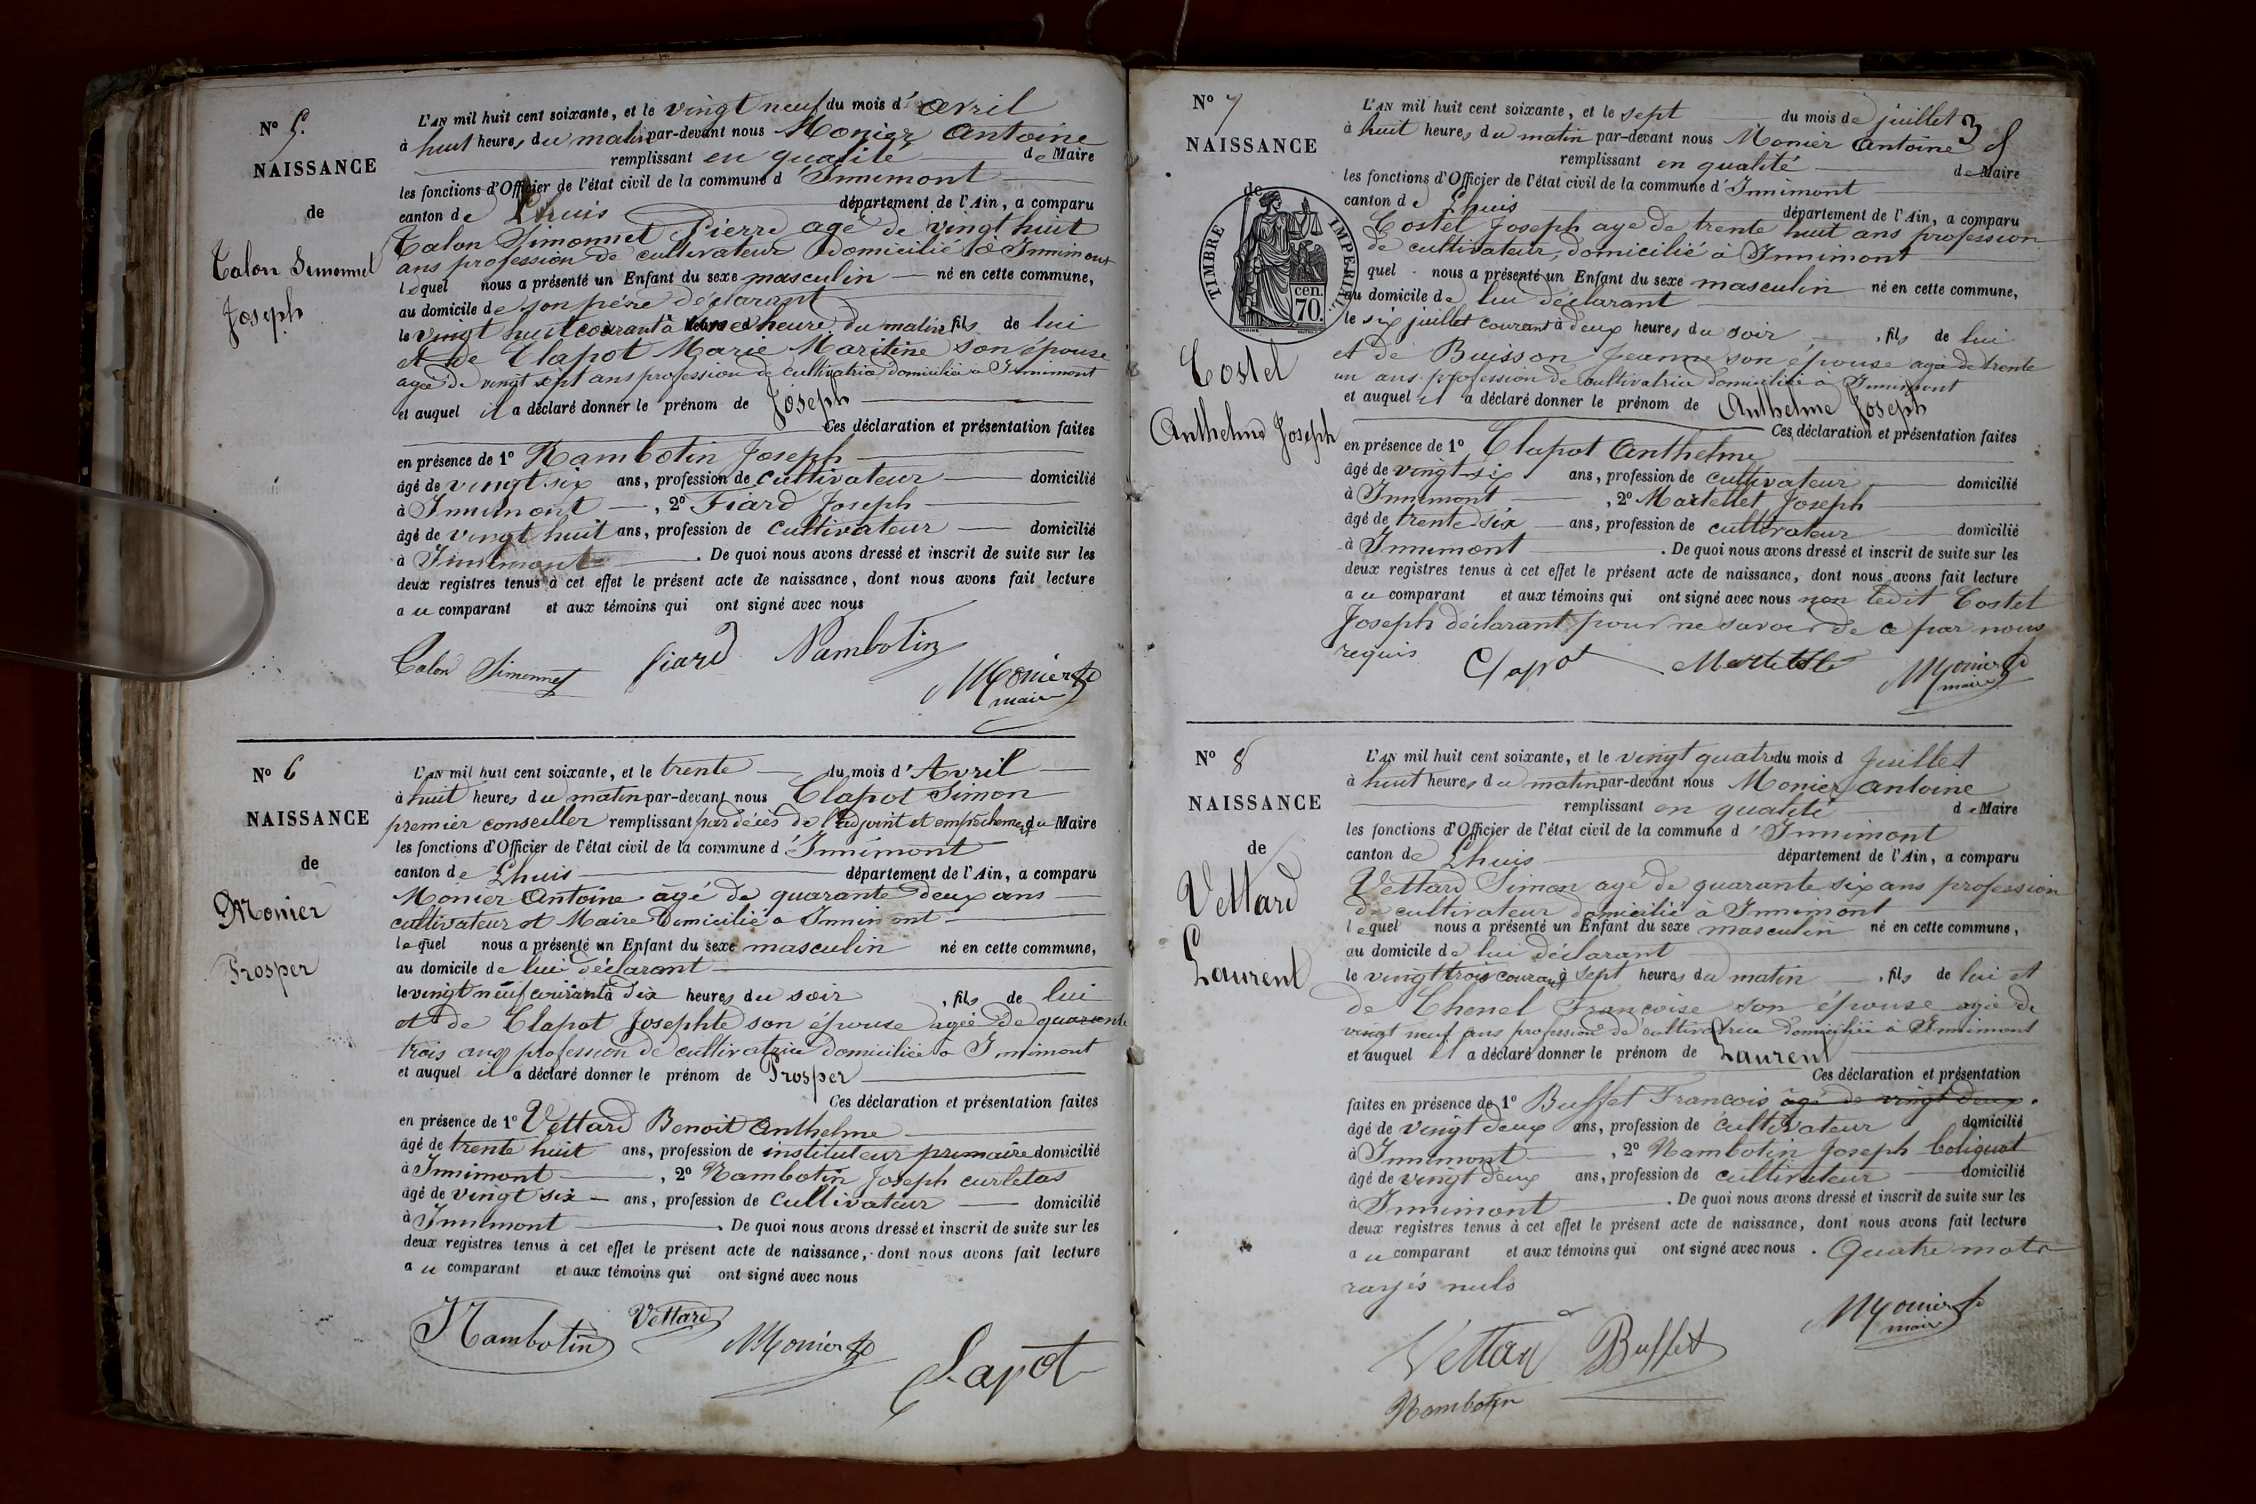 N° 5.
NAISSANCE
de
Talon Simonnet
Joseph
L'AN mil huit cent soixante, et le vingt neuf du mois d'avril
à huit heures du matin par-devant nous Monier Antoine
remplissant en qualité de Maire
les fonctions d'Officier de l'état civil de la commune d'Innimont
canton de Lhuis département de l'Ain, a comparu
Talon Simonnet Pierre agé de vingt huit
ans profession de cultivateur domicilié à Innimont
lequel nous a présenté un Enfant du sexe masculin né en cette commune,
au domicile de son père déclarant
le vingt huit courant à heure du matin fils de lui
et de Clapot Marie Maritine son épouse
agée de vingt sept ans profession de cultivatrice domiciliée à Innimont
et auquel il a déclaré donner le prénom de Joseph
Ces déclaration et présentation faites
en présence de 1° Rambotin Joseph
âgé de vingt six ans, profession de cultivateur domicilié
à Innimont, 2° Fiard Joseph
âgé de vingt huit ans, profession de cultivateur domicilié
à Innimont. De quoi nous avons dressé et inscrit de suite sur les
deux registres tenus à cet effet le présent acte de naissance, dont nous avons fait lecture
au comparant et aux témoins qui ont signé avec nous
Talon Simonnet fiard Nambotin
Monier
maire
N° 6
NAISSANCE
de
Monier
Prosper
L'AN mil huit cent soixante, et le trente du mois d'Avril
à huit heures du matin par-devant nous Clapot Simon
premier conseiller remplissant par décès de l'adjoint et empêchement du Maire
les fonctions d'Officier de l'état civil de la commune d'Innimont
canton de Lhuis département de l'Ain, a comparu
Monier Antoine âgé de quarante deux ans
cultivateur et Maire domicilié à Innimont
lequel nous a présenté un Enfant du sexe masculin né en cette commune,
au domicile de lui déclarant
le vingt neuf courant à dix heures du soir, fils de lui
et de Clapot Josephte son épouse agée de quarante
trois ans profession de cultivatrice domiciliée à Innimont
et auquel il a déclaré donner le prénom de Prosper
Ces déclaration et présentation faites
en présence de 1° Vettard Benoit Anthelme
âgé de trente huit ans, profession de instituteur primaire domicilié
à Innimont, 2° Nambotin Joseph curletas
âgé de vingt six ans, profession de cultivateur domicilié
à Innimont. De quoi nous avons dressé et inscrit de suite sur les
deux registres tenus à cet effet le présent acte de naissance, dont nous avons fait lecture
au comparant et aux témoins qui ont signé avec nous
Nambotin Vettard Monier Clapot
N° 7
NAISSANCE
de
TIMBRE IMPÉRIAL
cen.
70.
Costel
Anthelme Joseph
L'AN mil huit cent soixante, et le sept du mois de juillet 3
à huit heures du matin par-devant nous Monier Antoine
remplissant en qualité de Maire
les fonctions d'Officier de l'état civil de la commune d'Innimont
canton de Lhuis département de l'Ain, a comparu
Costel Joseph age de trente huit ans profession
de cultivateur, domicilié à Innimont
quel nous a présenté un Enfant du sexe masculin né en cette commune,
au domicile de lui déclarant
le six juillet courant à deux heures du soir, fils de lui
et de Buisson Jeanne son épouse agée de trente
un ans profession de cultivatrice domiciliée à Innimont
et auquel il a déclaré donner le prénom de Anthelme Joseph
Ces déclaration et présentation faites
en présence de 1° Clapot Anthelme
âgé de vingt six ans, profession de cultivateur domicilié
à Innimont, 2° Martellet Joseph
âgé de trente six ans, profession de cultivateur domicilié
à Innimont. De quoi nous avons dressé et inscrit de suite sur les
deux registres tenus à cet effet le présent acte de naissance, dont nous avons fait lecture
au comparant et aux témoins qui ont signé avec nous non ledit Costel
Joseph déclarant pour ne savoir de ce par nous
requis Clapot Monier
maire
N° 8
NAISSANCE
de
Vettard
Laurent
L'AN mil huit cent soixante, et le vingt quatre du mois d Juillet
à huit heures du matin par-devant nous Monier Antoine
remplissant en qualité de Maire
les fonctions d'Officier de l'état civil de la commune d'Innimont
canton de Lhuis département de l'Ain, a comparu
Vettard Simon agé de quarante six ans profession
de cultivateur domicilié à Innimont
lequel nous a présenté un Enfant du sexe masculin né en cette commune,
au domicile de lui déclarant
le vingt trois courant à sept heures du matin, fils de lui et
de Chenel Françoise son épouse agée de
vingt neuf ans profession de cultivatrice domiciliée à Innimont
et auquel il a déclaré donner le prénom de Laurent
Ces déclaration et présentation
faites en présence de 1° Buffet Francois âgé de vingt deux.
âgé de vingt deux ans, profession de cultivateur domicilié
à Innimont, 2° Nambotin Joseph
âgé de vingt deux ans, profession de cultivateur domicilié
à Innimont. De quoi nous avons dressé et inscrit de suite sur les
deux registres tenus à cet effet le présent acte de naissance, dont nous avons fait lecture
au comparant et aux témoins qui ont signé avec nous. Quatre mots
rayés nuls
Monier
maire
Vettard Buffet
Nambotin